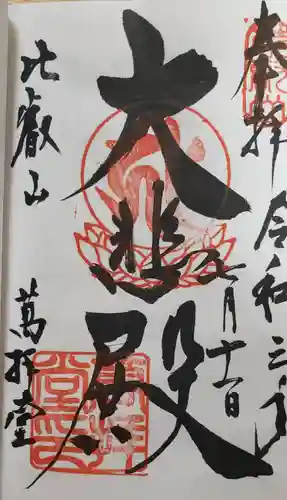 奉拝
令和三年
七月十一日
大悲殿
比叡山
萬拝堂